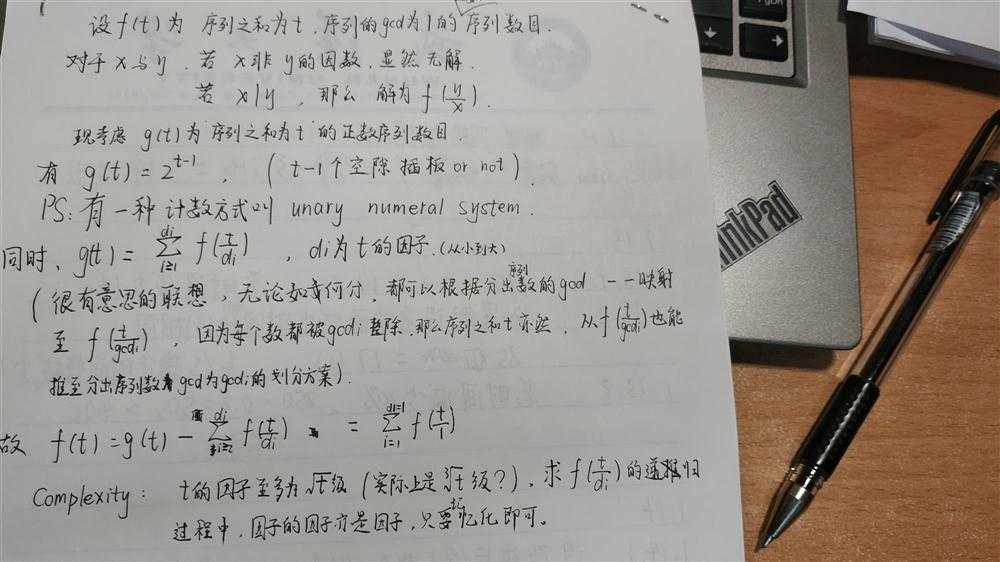 设 f(t) 为 序列之和为t, 序列的gcd为1的序列数目.
对于 x 与 y, 若 x 非 y 的因数, 显然无解.
若 x|y, 那么 解为 f(y/x).
现考虑 g(t) 为 序列之和为 t 的正数序列数目.
有 g(t) = 2^{t-1}, ( t-1 个空隙 插板 or not ).
PS: 有一种计数方式叫 unary numeral system.
同时, g(t) = ∑_{i≥1}^{di} f(t/di), di 为 t 的因子.(从小到大)
(很有意思的联想, 无论如何分, 都可以根据分出序列数的gcd 一一映射
至 f(t/gcdi), 因为每个数都被gcdi整除, 那么序列之和t亦然, 从f(t/gcdi)也能
推至分出序列数gcd为gcdi的划分方案).
故 f(t) = g(t) - ∑_{i=2}^{di} f(t/di) = ∑_{i=1}^{di=1} f(t/1)
Complexity: t的因子至多为 √t 级 (实际上是 ∛t 级?), 求 f(t/di) 的递归
过程中, 因子的因子亦是因子, 只要记忆化即可。
ThinkPad